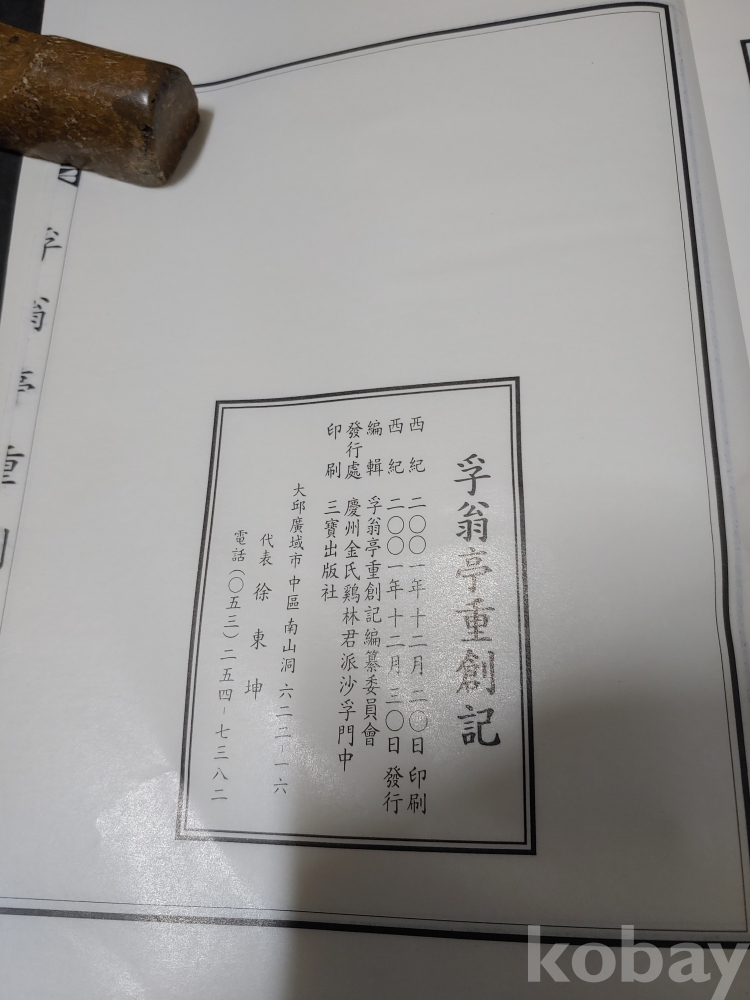 孚翁亭重創記
西紀 二〇〇一年 十二月 二〇日 印刷
西紀 二〇〇一年 十二月 三〇日 發行
編輯 孚翁亭重創記編纂委員會
發行處 慶州金氏鷄林君派沙孚門中
印刷 三寶出版社
大邱廣域市 中區 南山洞 六二二-一六
代表 徐東坤
電話 (〇五三) 二五四-七三八二
孚翁亭重
kobay